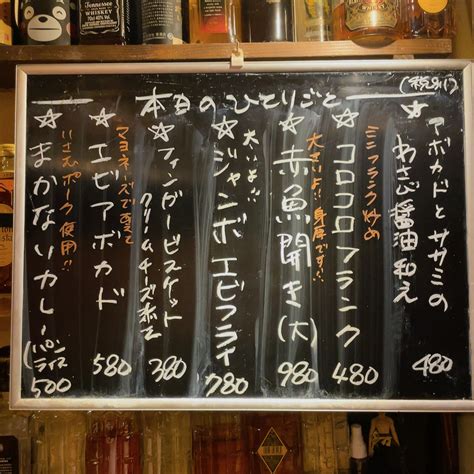 Tennessee
WHISKEY
WHISKEY
本日のひとりごと
(税別)
☆アボカドとササミの
わさび醤油和え
480
ミニフランク炒め
☆コロコロフランク
480
大きいよ!!身厚です!!
☆赤魚開き(大)
980
大いよ!!
☆ジャンボエビフライ
780
☆フィンガービスケット
クリームチーズ添え
380
マヨネーズで和えて
☆エビアボカド
580
いさむポーク使用!!
☆まかないカレー
(パン
ライス
500